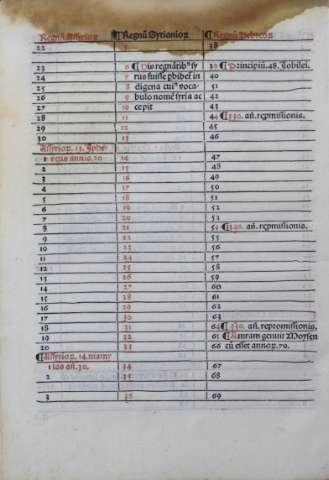 Regnũ Assyrioꝝ ¶Regnũ Sytionioꝝ ¶Regnũ Hebreoꝝ
22 5 38
23 6 ¶His regnãtibꝰ sy 39 ¶Principiũ.48. Jobilei.
24 7 rus fuisse phibet in 40
25 8 digena cuiꝰ voca 41
26 9 bulo nomẽ syria ac 42
27 10 cepit 43
28 11 44 ¶130. añ. repmissionis.
29 12 45
30 13 46
Assyrioꝝ. 13.
1 regn̄ annis. 20 14 47
2 15 48
3 16 49
4 17 50
5 18 51
6 19 52
7 20 53
8 21 54 ¶140. añ. repmissionis.
9 22 55
10 23 56
11 24 57
12 25 58
13 26 59
14 27 60
15 28 61
16 29 62
17 30 63
18 31 64 ¶150. añ. repromissionis.
19 32 65 ¶Amram genuit Moysen
20 33 66 cũ esset annoꝝ. 70.
¶Assyrioꝝ. 14.
1 añ. 30. 34 67
2 35 68
3 36 69